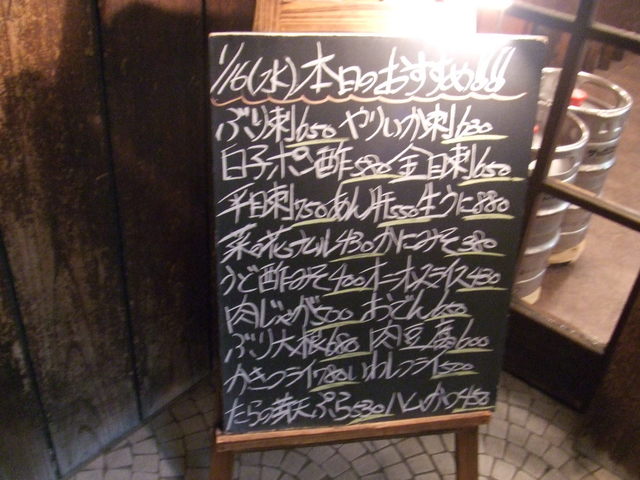 1/16(水)本日のおすすめ!!!
ぶり刺650 やりいか刺680
白子ポン酢580 金目刺650
平目刺750 あん肝550 生うに880
菜の花ナムル430 かにみそ380
うど酢みそ400 オニオンスライス430
肉じゃが500 おでん650
ぶり大根680 肉豆腐600
かきフライ780 いわしフライ500
たらの芽天ぷら530 ハムかつ450